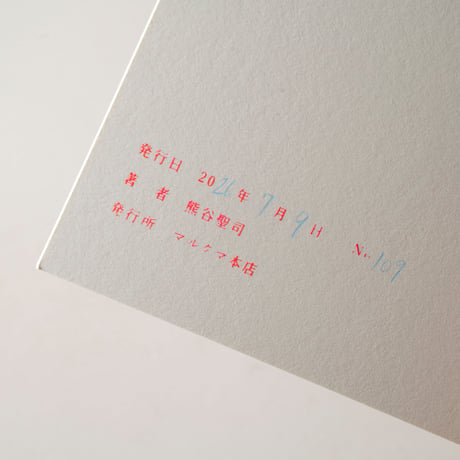 発行日 2026年7月9日 No.109
著者 熊谷聖司
発行所 マルクマ本店